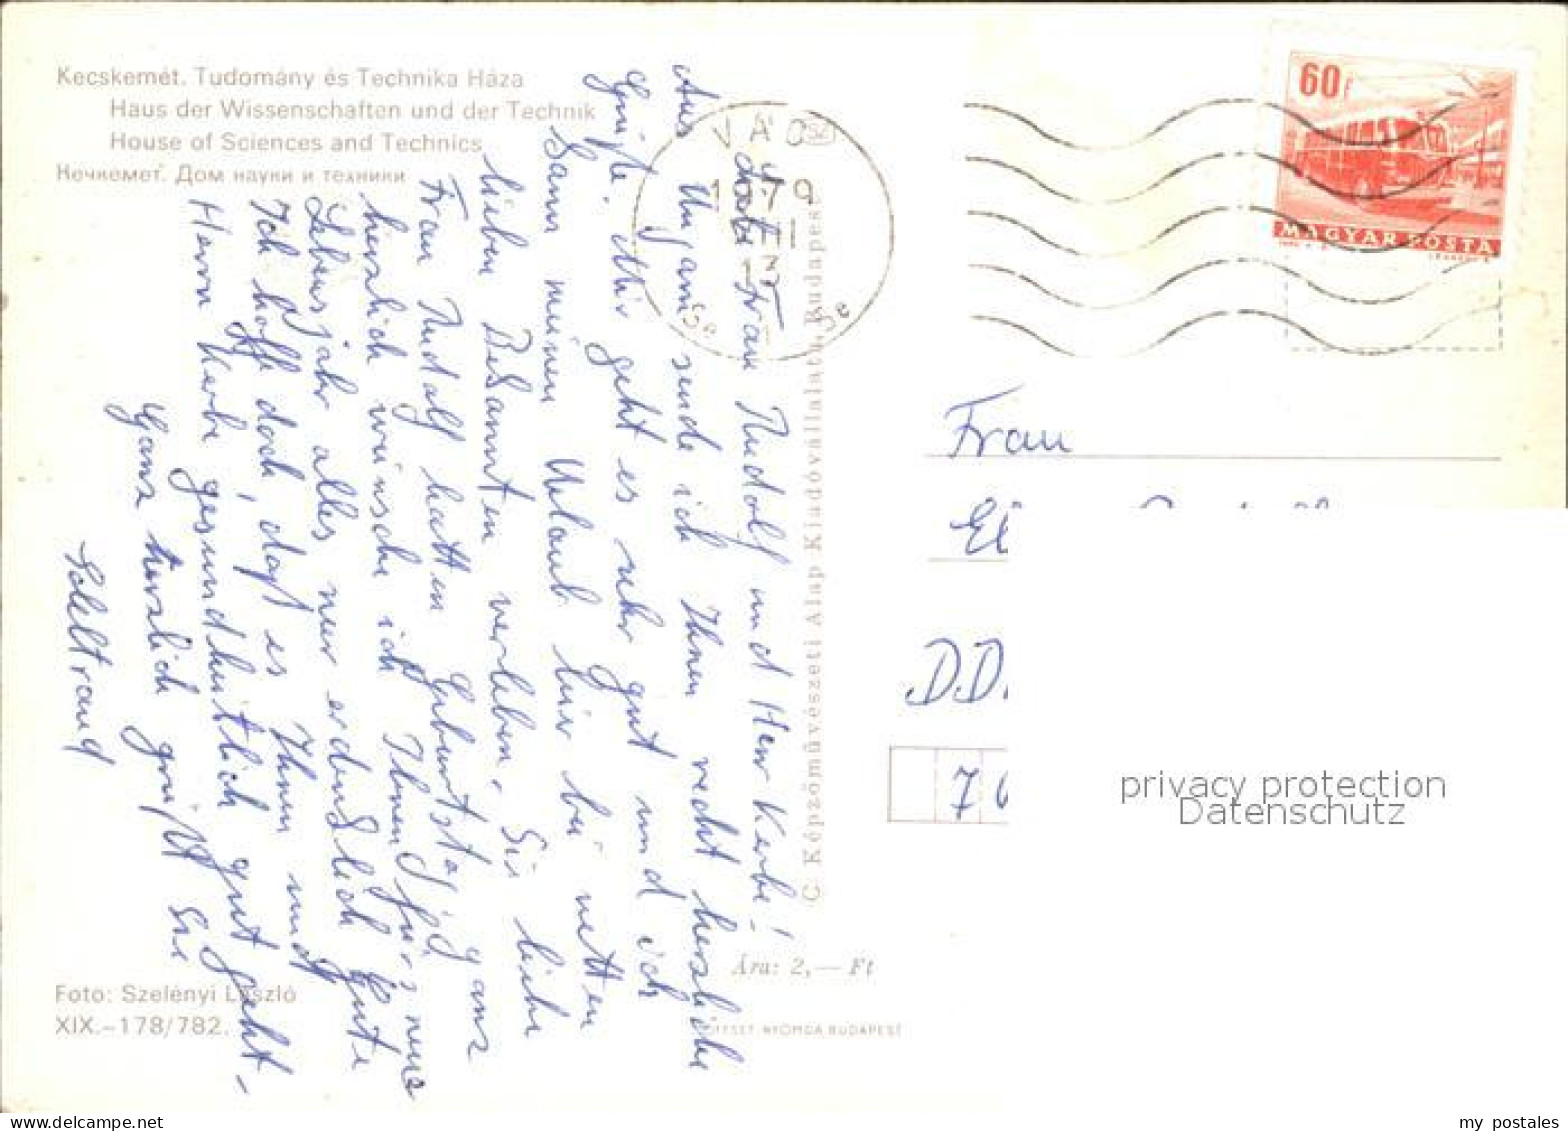 Kecskemét. Tudomány és Technika Háza
Haus der Wissenschaften und der Technik
House of Sciences and Technics
Нечкемет. Дом науки и техники
VÁC
1979
60f
MAGYAR POSTA
Liebe Frau Rudolf und Herr Kerbe!
Aus Ungarn sende ich Ihnen recht herzliche
Grüße. Mir geht es sehr gut und ich
kann meinen Urlaub hier bei netten
lieben Bekannten verleben. Sie liebe
Frau Rudolf hatten Geburtstag, ganz
herzlich wünsche ich Ihnen für's neue
Lebensjahr alles nur erdenklich Gute
Ich hoffe doch, daß es Ihnen und
Herrn Kerbe gesundheitlich gut geht-
Ganz herzlich grüßt Sie
C Képzőművészeti Alap Kiadóvállalata Budapest
Frau
D.D.
7
privacy protection
Datenschutz
Ára: 2,— Ft
Foto: Szelényi László
XIX.-178/782.
OFFSET NYOMDA BUDAPEST
my postales